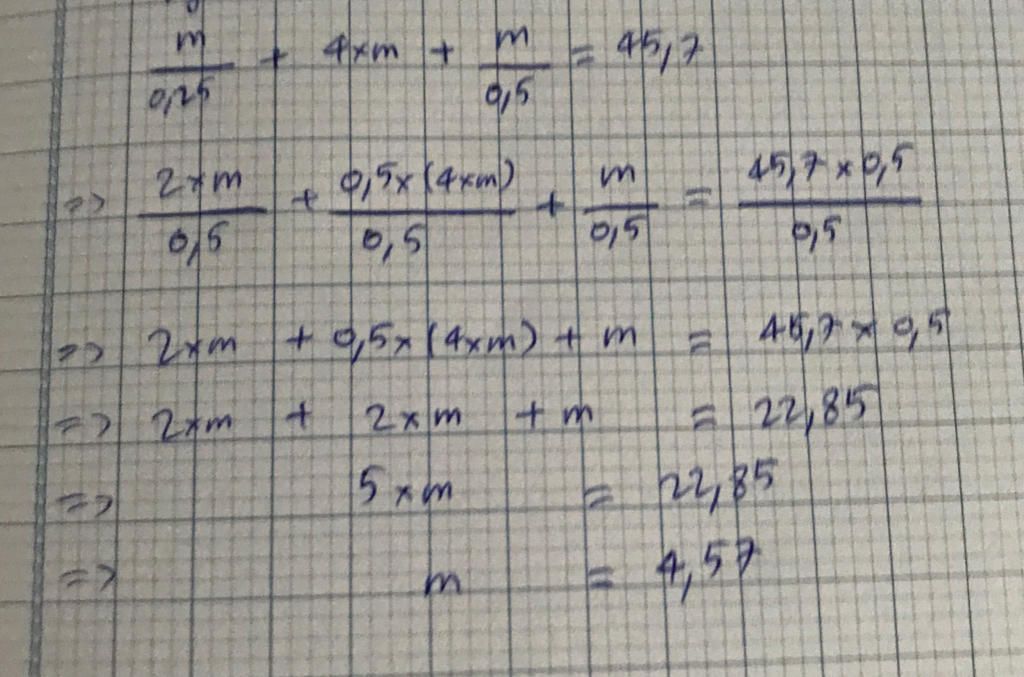 m/0,25 + 4×m + m/0,5 = 45,7
=> 2×m/0,5 + 0,5×(4×m)/0,5 + m/0,5 = 45,7×0,5/0,5
=> 2×m + 0,5×(4×m) + m = 45,7×0,5
=> 2×m + 2×m + m = 22,85
=> 5×m = 22,85
=> m = 4,57